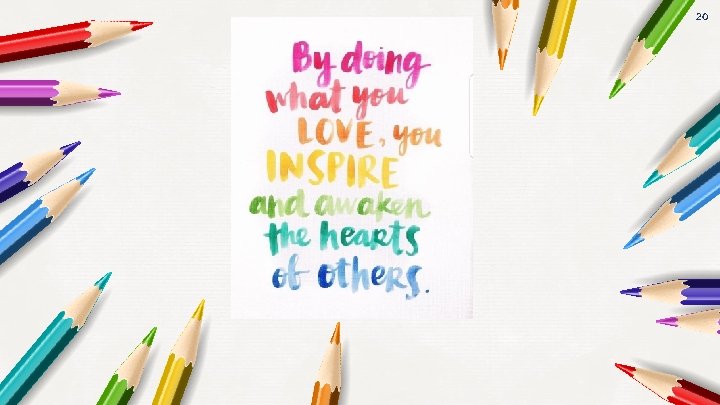 20
By doing
what you
LOVE, you
INSPIRE
and awaken
the hearts
of others.